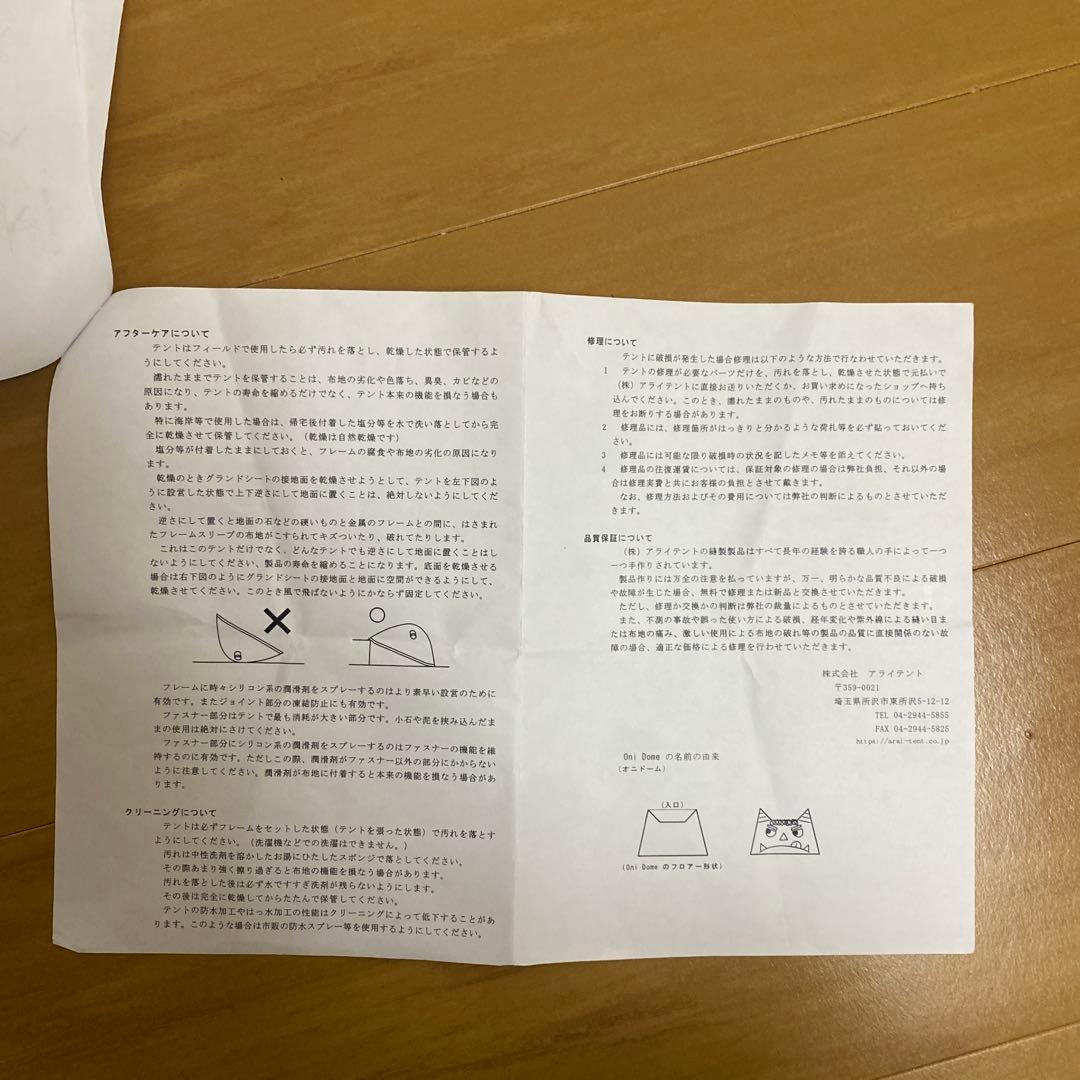 アフターケアについて
テントはフィールドで使用したら必ず汚れを落とし、乾燥した状態で保管するよ
うにしてください。
濡れたままでテントを保管することは、布地の劣化や色落ち、異臭、カビなどの
原因になり、テントの寿命を縮めるだけでなく、テント本来の機能を損なう場合も
あります。
特に海岸等で使用した場合は、帰宅後付着した塩分等を水で洗い落としてから完
全に乾燥させて保管してください。（乾燥は自然乾燥です）
塩分等が付着したままにしておくと、フレームの腐食や布地の劣化の原因になり
ます。
乾燥のときグランドシートの接地面を乾燥させようとして、テントを左下図のよ
うに設営した状態で上下逆さにして地面に置くことは、絶対しないようにしてくださ
い。
逆さにして置くと地面の石などの硬いものと金属のフレームとの間に、はさまれ
たフレームスリーブの布地がこすられてキズついたり、破れてたりします。
これはこのテントだけでなく、どんなテントでも逆さにして地面に置くことはし
ないようにしてください、製品の寿命を縮めることになります。底面を乾燥させる
場合は右下図のようにグランドシートの接地面と地面に空間ができるようにして、
乾燥させてください。このとき風で飛ばないようにかならず固定してください。
フレームに時々シリコン系の潤滑剤をスプレーするのはより素早い設営のために
有効です。またジョイント部分の凍結防止にも有効です。
ファスナー部分はテントで最も消耗が大きい部分です。小石や泥を挟み込んだま
まの使用は絶対にさけてください。
ファスナー部分にシリコン系の潤滑剤をスプレーするのはファスナーの機能を維
持するのに有効です。ただしこの際、潤滑剤がファスナー以外の部分にかからない
ように注意してください。潤滑剤が布地に付着すると本来の機能を損なう場合があ
ります。
クリーニングについて
テントは必ずフレームをセットした状態（テントを張った状態）で汚れを落とす
ようにしてください。（洗濯機などでの洗濯はできません。）
汚れは中性洗剤を溶かしたお湯にひたしたスポンジで落としてください。
その際あまり強く擦り過ぎると布地の機能を損なう場合があります。
汚れを落とした後は必ず水ですすぎ洗剤が残らないようにします。
その後は完全に乾燥してからたたんで保管してください。
テントの防水加工やはっ水加工の性能はクリーニングによって低下することがあ
ります。このような場合は市販の防水スプレー等を使用するようにしてください。
修理について
テントに破損が発生した場合修理は以下のような方法で行なわせていただきます。
1 テントの修理が必要なパーツだけを、汚れを落とし、乾燥させた状態で元払いで
（株）アライテントに直接お送りいただくか、お買い求めになったショップへ持ち
込んでください。このとき、濡れたままのものや、汚れたままのものについては修
理をお断りする場合があります。
2 修理品には、修理箇所がはっきりと分かるような荷札等を必ず貼っておいてくだ
さい。
3 修理品には可能な限り破損時の状況を記したメモ等を添えてください。
4 修理品の往復運賃については、保証対象の修理の場合は弊社負担、それ以外の場
合は修理実費と共にお客様の負担とさせて戴きます。
なお、修理方法およびその費用については弊社の判断によるものとさせていただ
きます。
品質保証について
（株）アライテントの縫製製品はすべて長年の経験を誇る職人の手によって一つ
一つ手作りされています。
製品作りには万全の注意を払っていますが、万一、明らかな品質不良による破損
や故障が生じた場合、無料で修理または新品と交換させていただきます。
ただし、修理か交換かの判断は弊社の裁量によるものとさせていただきます。
また、不測の事故や誤った使い方による破損、経年変化や紫外線による縫い目ま
たは布地の痛み、激しい使用による布地の破れ等の製品の品質に直接関係のない故
障の場合、適正な価格による修理を行わせていただきます。
株式会社 アライテント
〒359-0021
埼玉県所沢市東所沢5-12-12
TEL 04-2944-5855
FAX 04-2944-5825
https://arai-tent.co.jp
Oni Dome の名前の由来
（オニドーム）
（入口）
（Oni Dome のフロアー形状）